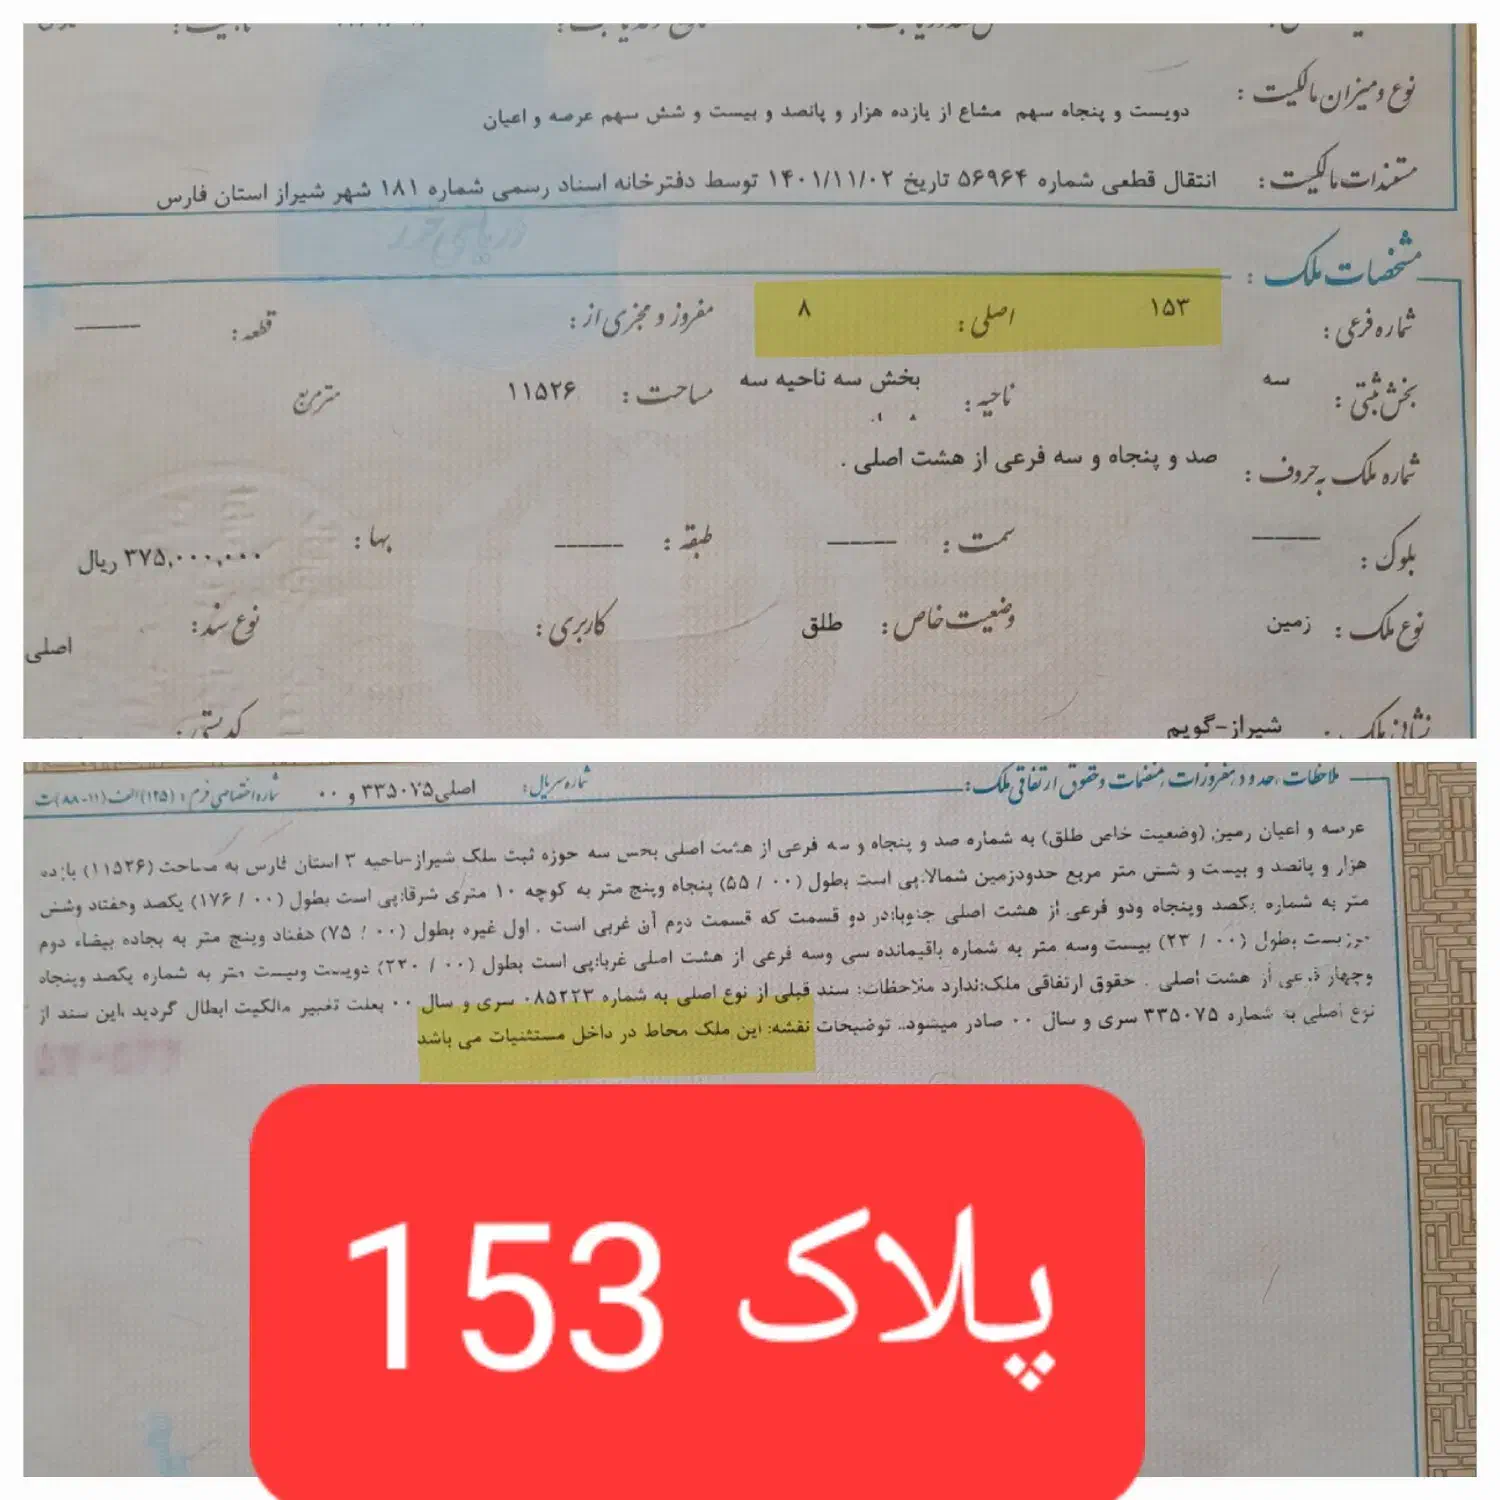 نوع و میزان مالکیت : دویست و پنجاه سهم مشاع از یازده هزار و پانصد و بیست و شش سهم عرصه و اعیان
مستندات مالکیت : انتقال قطعی شماره ۵۶۹۶۴ تاریخ ۱۴۰۱/۱۱/۰۲ توسط دفترخانه اسناد رسمی شماره ۱۸۱ شهر شیراز استان فارس
مشخصات ملک :
شماره فرعی : ۱۵۳ اصلی : ۸ مفروز و مجزی از : —— قطعه : ——
بخش ثبتی : سه ناحیه : بخش سه ناحیه سه مساحت : ۱۱۵۲۶ مترمربع
شماره ملک به حروف : صد و پنجاه و سه فرعی از هشت اصلی .
بلوک : —— سمت : —— طبقه : —— بها : ۳۷۵,۰۰۰,۰۰۰ ریال
نوع ملک : زمین وضعیت خاص : طلق کاربری : نوع سند : اصلی
نشانی ملک : شیراز-گویم کدپستی :
ملاحظات، حدود، مفروزات، منضمات و حقوق ارتفاقی ملک: شماره سریال: اصلی ۳۳۵۰۷۵ و ۰۰ شماره اختصاصی فرم : (۱۲۵) الف (۱۱-۸۸) ت
عرصه و اعیان زمین (وضعیت خاص طلق) به شماره صد و پنجاه و سه فرعی از هشت اصلی بخش سه حوزه ثبت ملک شیراز-ناحیه ۳ استان فارس به مساحت (۱۱۵۲۶) یازده
هزار و پانصد و بیست و شش متر مربع حدودزمین شمالا:پی است بطول (۰۰ / ۵۵) پنجاه وپنج متر به کوچه ۱۰ متری شرقا:پی است بطول (۰۰ / ۱۷۶) یکصد وهفتاد وشش
متر به شماره یکصد وپنجاه ودو فرعی از هشت اصلی جنوبا:در دو قسمت که قسمت دوم آن غربی است . اول غیره بطول (۰۰ / ۷۵) هفتاد وپنج متر به بجاده بیضاء دوم
مرزیست بطول (۰۰ / ۲۳) بیست وسه متر به شماره باقیمانده سی وسه فرعی از هشت اصلی غربا:پی است بطول (۰۰ / ۲۲۰) دویست وبیست متر به شماره یکصد وپنجاه
وچهار فرعی از هشت اصلی . حقوق ارتفاقی ملک:ندارد ملاحظات: سند قبلی از نوع اصلی به شماره ۰۸۵۲۲۳ سری و سال ۰۰ بعلت تغییر مالکیت ابطال گردید ،این سند از
نوع اصلی به شماره ۳۳۵۰۷۵ سری و سال ۰۰ صادر میشود.. توضیحات نقشه: این ملک محاط در داخل مستثنیات می باشد
پلاک 153